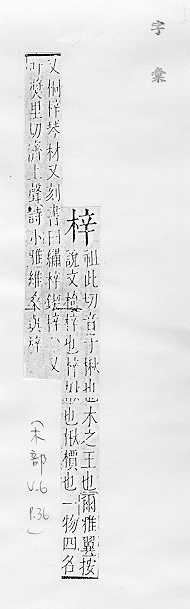 字彙
梓 祖此切音子楸也木之王也爾雅翼按
說文梓也梓也楸檟也一物四名
又桐梓琴材又刻書曰繡梓鋟梓○又
叶獎里切濟上聲詩小雅維桑與梓
(木部
V.6
P.36)